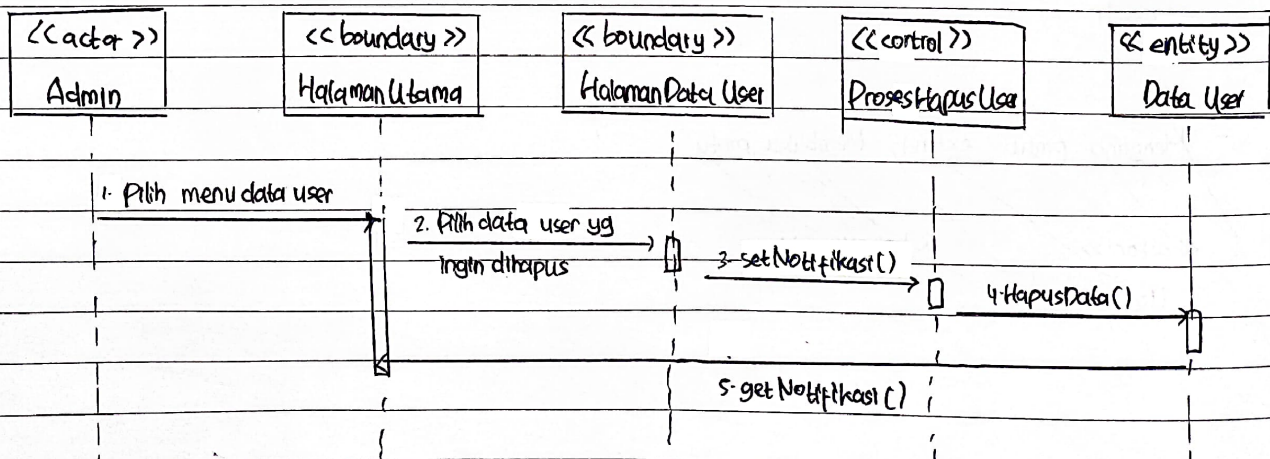 <<actor>>
Admin
<<boundary>>
HalamanUtama
<<boundary>>
HalamanData User
<<control>>
ProsesHapusUser
<<entity>>
Data User
1. Pilih menu data user
2. Pilih data user yg
ingin dihapus
3. setNotifikasi()
4. HapusData()
5. getNotifikasi()